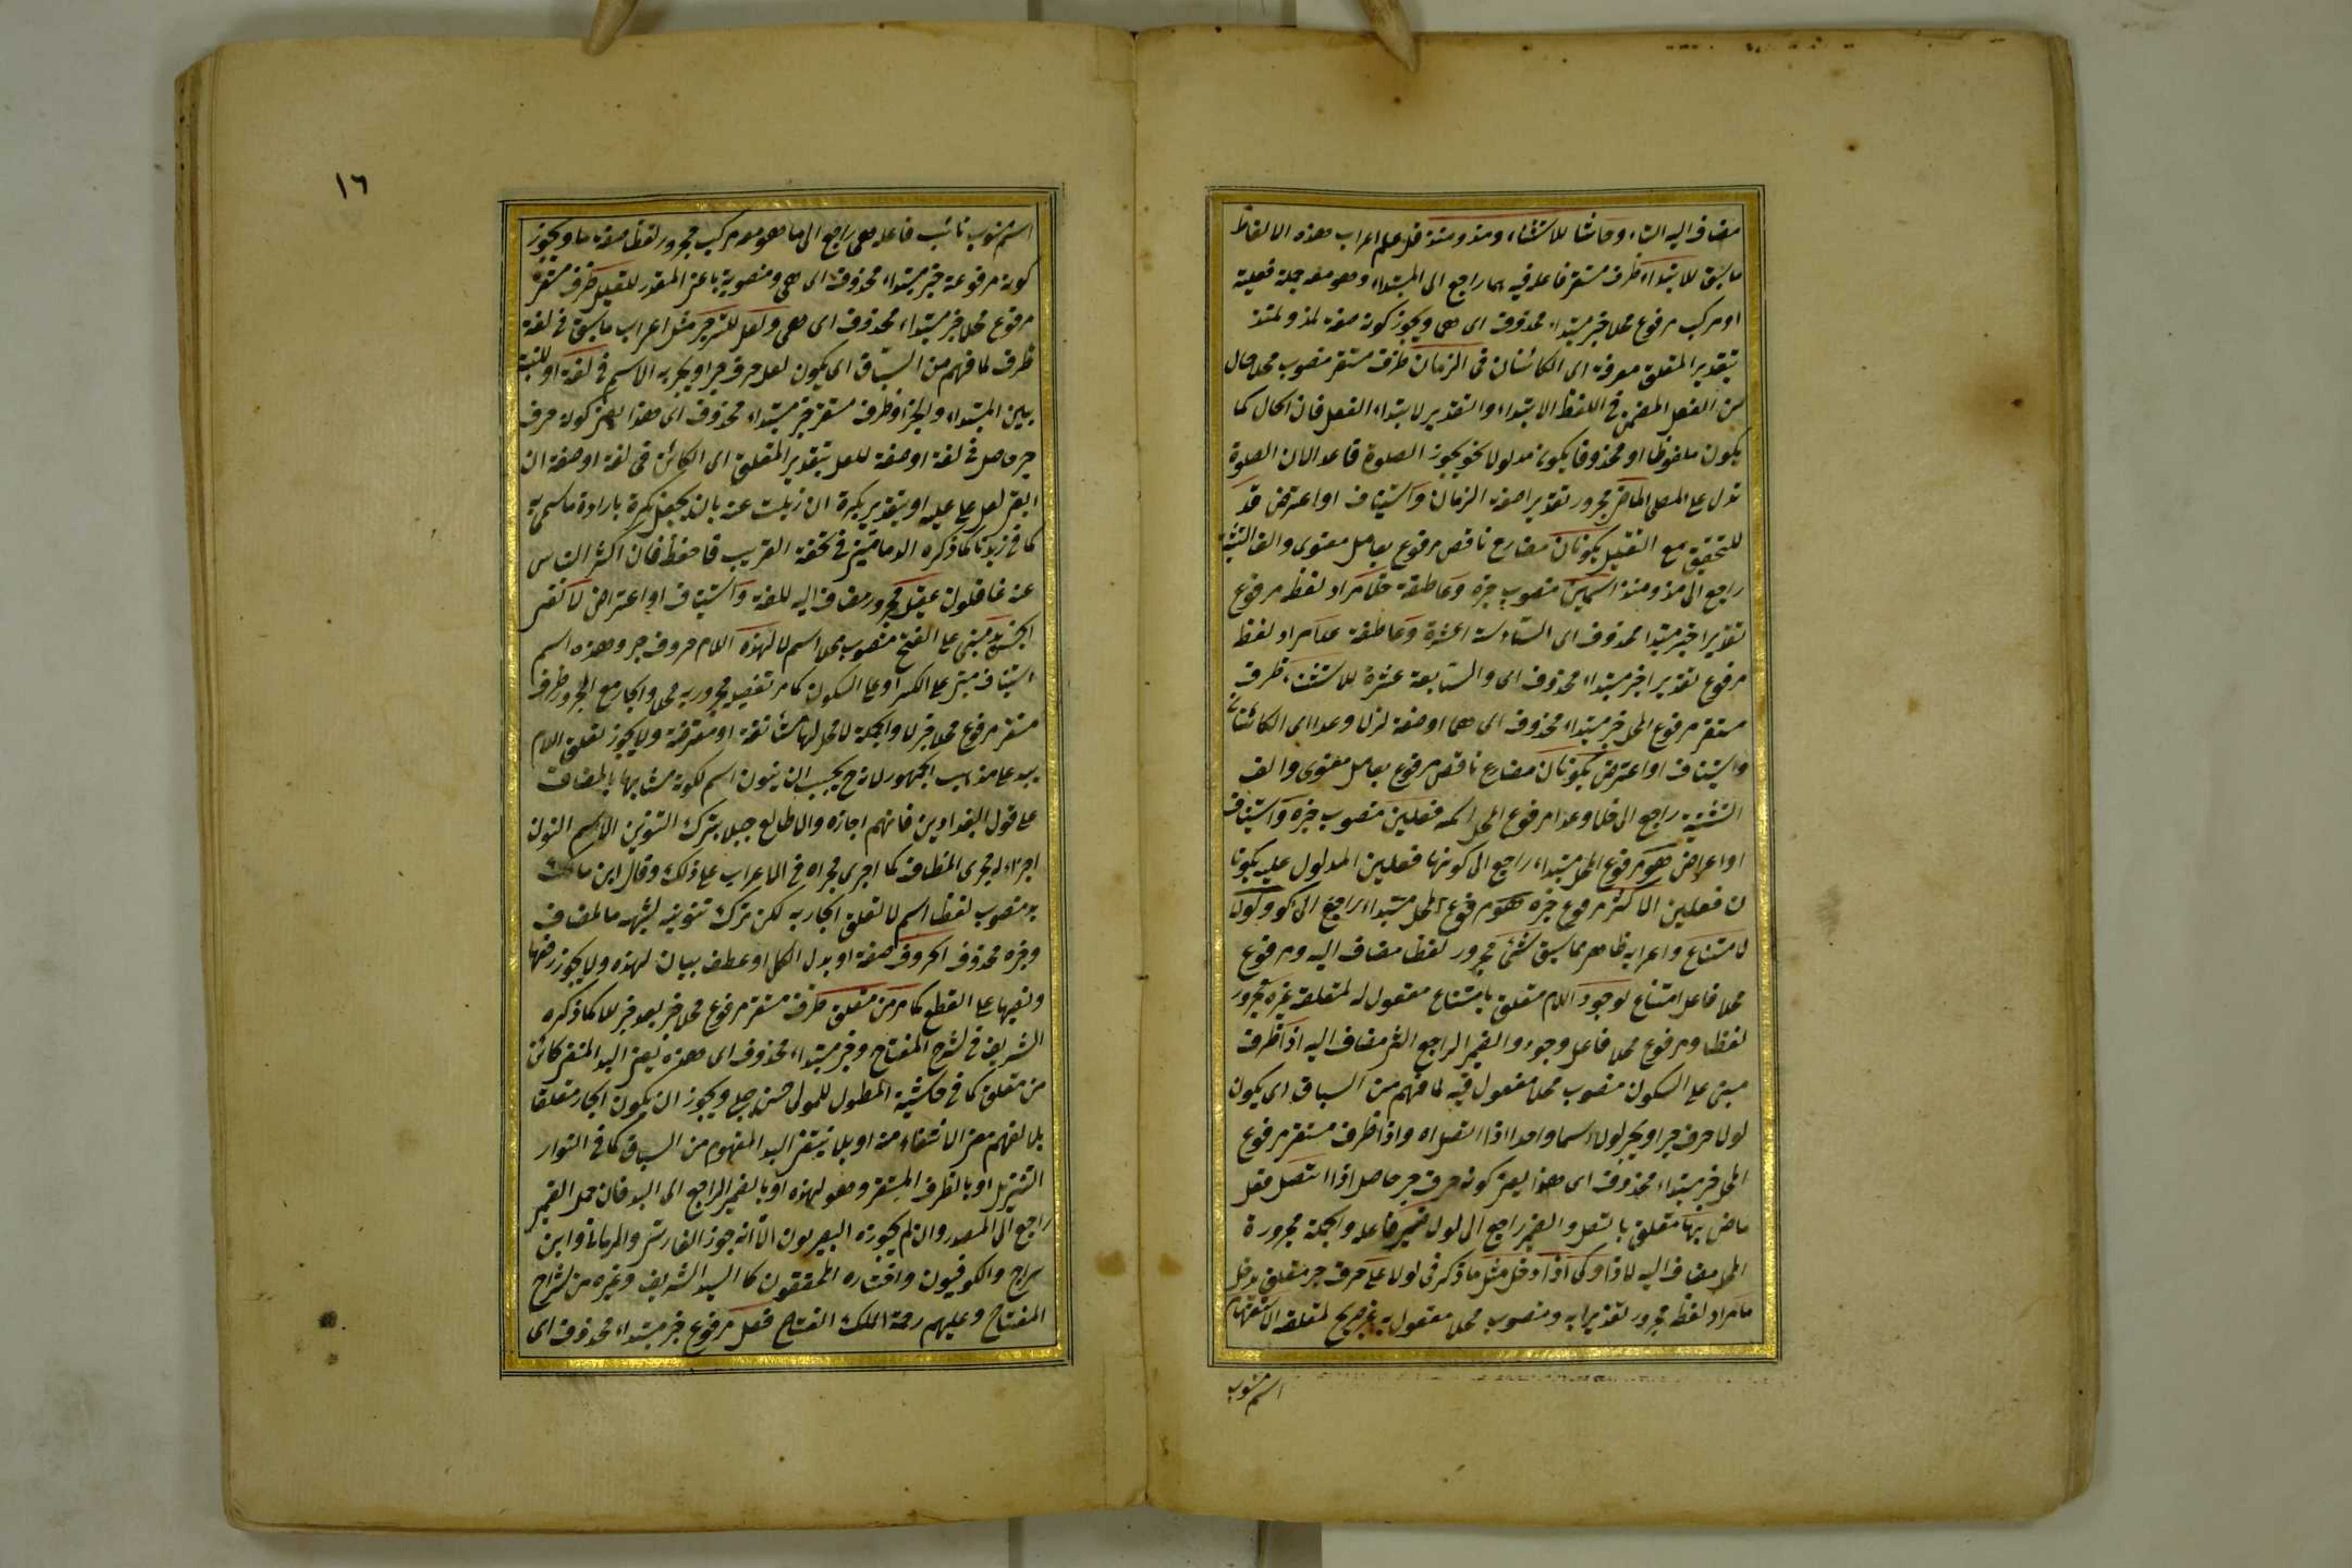 مضاف اليه التاء وحاشا للاستثناء ومذ ومنذ قد علم اعراب هذه الالفاظ
ما سبق للابتداء ظرف مستقر فاعله فيه هما راجع الى المبتداء وهو معه جملة فعلية
او مركب مرفوع محلا خبر مبتداء محذوف اى هى ويجوز كونه صفة لمذ ولمنذ
بتقدير المتعلق معرفة اى الكائنان فى الزمان ظرف مستقر منصوب محلا حال
من الفعل المضمن فى اللفظ الابتداء والتقدير لابتداء الفعل فان الحال كما
يكون ملفوظا او محذوفا يكون مدلولا نحو يجوز الصلوة قاعدا لان الصلوة
تدل على المصلى الماضى مجرور تقديرا صفة الزمان واستيناف او اعتراض قد
للتحقيق مع التقليل يكونان مضارع ناقص مرفوع بعامل معنوى والف التثنية
راجع الى مذ ومنذ اسمين منصوب خبره وعاطفة خلا مراد لفظه مرفوع
تقديرا خبر مبتدا محذوف اى السادسة عشرة وعاطفة عدا مراد لفظ
مرفوع تقديرا خبر مبتداء محذوف اى والسابعة عشرة للاستثناء ظرف
مستقر مرفوع المحل خبر مبتداء محذوف اى هما او صفة لخلا وعدا اى الكائنان
واستيناف او اعتراض يكونان مضارع ناقص مرفوع بعامل معنوى والف
التثنية راجع الى خلا وعدا مرفوع المحل اسمه فعلين منصوب خبره واستيناف
او اعراض هو مرفوع المحل مبتداء راجع الى كونهما فعلين المدلول عليه يكونا
ن فعلين الاكثر مرفوع خبره هو مرفوع المحل مبتداء راجع الى كو ولولا
لامتناع واعرابه ظاهر مما سبق شئ مجرور لفظا مضاف اليه ومرفوع
محلا فاعل امتناع لوجود اللام متعلق بامتناع مفعول له لمتعلقه غيره مجرور
لفظا ومرفوع محلا فاعل وجود والضمير الراجع الشئ مضاف اليه اذا ظرف
مبنى على السكون منصوب محلا مفعول فيه لما فهم من السباق اى يكون
لولا حرف جر او يجر لولا اسما واحدا اذا اتصل اه واذا ظرف مستقر مرفوع
المحل خبر مبتداء محذوف اى هذا يعنى كونه حرف جر حاصل اذا اتصل فعل
ماض بها متعلق باتصل والضمير راجع الى لولا ضمير فاعله والجملة مجرورة
المحل مضاف اليه لاذا وكى اذا دخل مثل ما ذكر فى لولا على حرف جر متعلق بدخل
ما مراد لفظه مجرور تقديرا به ومنصوب محلا مفعول به غير صريح لمتعلقه الاستفهامية
اسم منسوب
١٦
اسم منسوب نائب فاعله هى راجع الى ما هو معه مركب مجرور لفظا صفة ما ويجوز
كونه مرفوعة خبر مبتداء محذوف اى هى ومنصوبة باعنى المقدر للتعليل ظرف مستقر
مرفوع محلا خبر مبتداء محذوف اى هى ولعل للترجى مثل اعراب ما سبق فى لغة
ظرف لما فهم من السباق اى يكون لعل حرف جر او يجر به الاسم فى لغة او للنسبة
بين المبتداء والخبر او ظرف مستقر خبر مبتداء محذوف اى هذا يعنى كونه حرف
جر حاصل فى لغة او صفة للعل بتقدير المتعلق اى الكائن فى لغة او صفة ان
اعتبر لعل على علميه او بتقدير نكرة ان زيلت عنه بان يجعل نكرة بارادة ما سمى به
كما فى زيدنا كما ذكره الدمامينى فى تحفة الغريب فاحفظ فان اكثر الناس
عنه غافلون عقيل مجرور مضاف اليه للغة واستيناف او اعتراض لا لنفى
الجنس بد مبنى على الفتح منصوب محلا اسم لا لهذه اللام حروف جر وهذه اسم
استيناف مبنى على الكسر او على السكون كما مر تفصيله مجرور به محلا والجار مع المجرور ظرف
مستقر مرفوع محلا خبر لا والجملة لا محل لها مستأنفة او معترضة ولا يجوز تعلق اللام
ببد على مذهب الجمهور لانه ح يجب ان ينون اسم لكونه مشابها بالمضاف
على قول البغداديين فانهم اجازه والا طالع جبلا بترك التنوين الاسم النون
اجراء له مجرى المضاف كما اجرى مجراه فى الاعراب على ذلك وقال ابن مالك
به منصوب لفظا اسم لا لتعلق الجار به لكن ترك تنوينه لشبهه بالمضاف
وخبره محذوف الحروف صفة او بدل الكل او عطف بيان لهذه ولا يجوز رفعها
ونصبها على القطع كما مر من متعلق ظرف مستقر مرفوع محلا خبر بعد خبر للا كما ذكره
الشريف فى شرح المفتاح وخبر مبتداء محذوف اى هذه يعنى البد المنفى كائن
من متعلق كما فى حاشية المطول للمولى حسن چلبى ويجوز ان يكون الجار متعلقا
بلا لفهم معنى الانتفاء منه او بلا ينتفى البد المفهوم من السباق كما فى انوار
التنزيل او بالظرف المستقر وهو لهذه او بالضمير الراجع الى البد فان عمل الضمير
راجع الى المصدر وان لم يجوزه البصريون الا انه جوز الفارسى والرمانى وابن
سراج والكوفيون واختاره المحققون كالسيد الشريف وغيره من شراح
المفتاح وعليهم رحمة الملك الفتاح فعل مرفوع خبر مبتداء محذوف اى